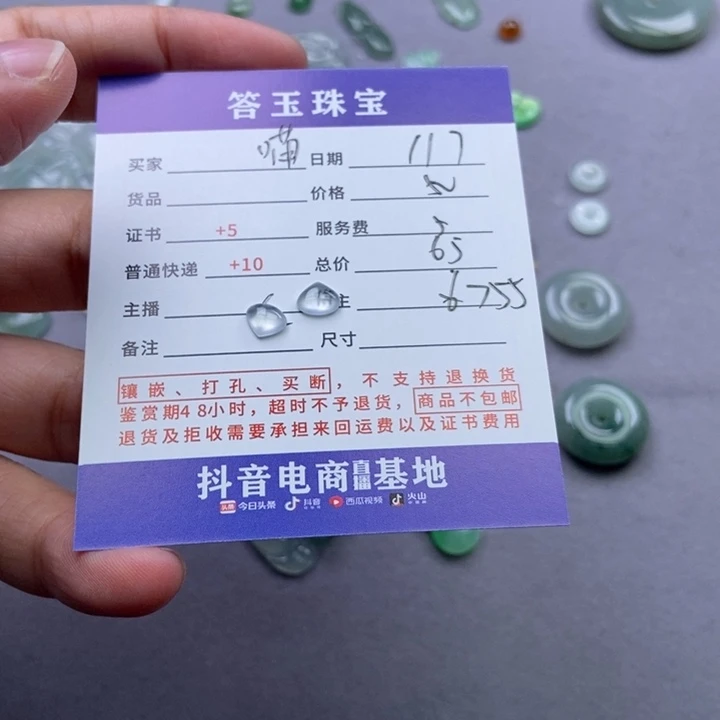 答玉珠宝
买家 喵 日期 117
货品 价格
证书 +5 服务费 5
普通快递 +10 总价 65
主播 货主 6755
备注 尺寸
镶嵌、打孔、买断，不支持退换货
鉴赏期48小时，超时不予退货，商品不包邮
退货及拒收需要承担来回运费以及证书费用
抖音电商直播基地
头条 今日头条 抖音 西瓜视频 火山